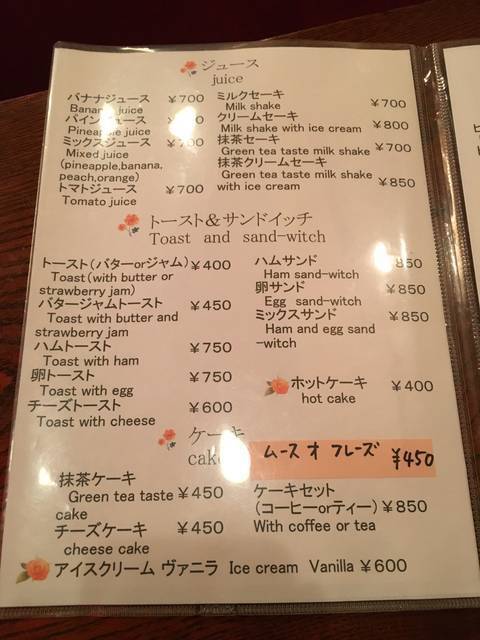 ジュース
juice
バナナジュース ¥700
Banana juice
パインジュース ¥700
Pineapple juice
ミックスジュース ¥700
Mixed juice
(pineapple,banana,
peach,orange)
トマトジュース ¥700
Tomato juice
ミルクセーキ ¥700
Milk shake
クリームセーキ ¥800
Milk shake with ice cream
抹茶セーキ ¥700
Green tea taste milk shake
抹茶クリームセーキ ¥850
Green tea taste milk shake
with ice cream
トースト&サンドイッチ
Toast and sand-witch
トースト(バターorジャム) ¥400
Toast(with butter or
strawberry jam)
バタージャムトースト ¥450
Toast with butter and
strawberry jam
ハムトースト ¥750
Toast with ham
卵トースト ¥750
Toast with egg
チーズトースト ¥600
Toast with cheese
ハムサンド ¥850
Ham sand-witch
卵サンド ¥850
Egg sand-witch
ミックスサンド ¥850
Ham and egg sand
-witch
ホットケーキ ¥400
hot cake
ケーキ
cake
ムース オ フレーズ ¥450
抹茶ケーキ
Green tea taste ¥450
cake
チーズケーキ ¥450
cheese cake
ケーキセット
(コーヒーorティー) ¥850
With coffee or tea
アイスクリーム ヴァニラ Ice cream Vanilla ¥600